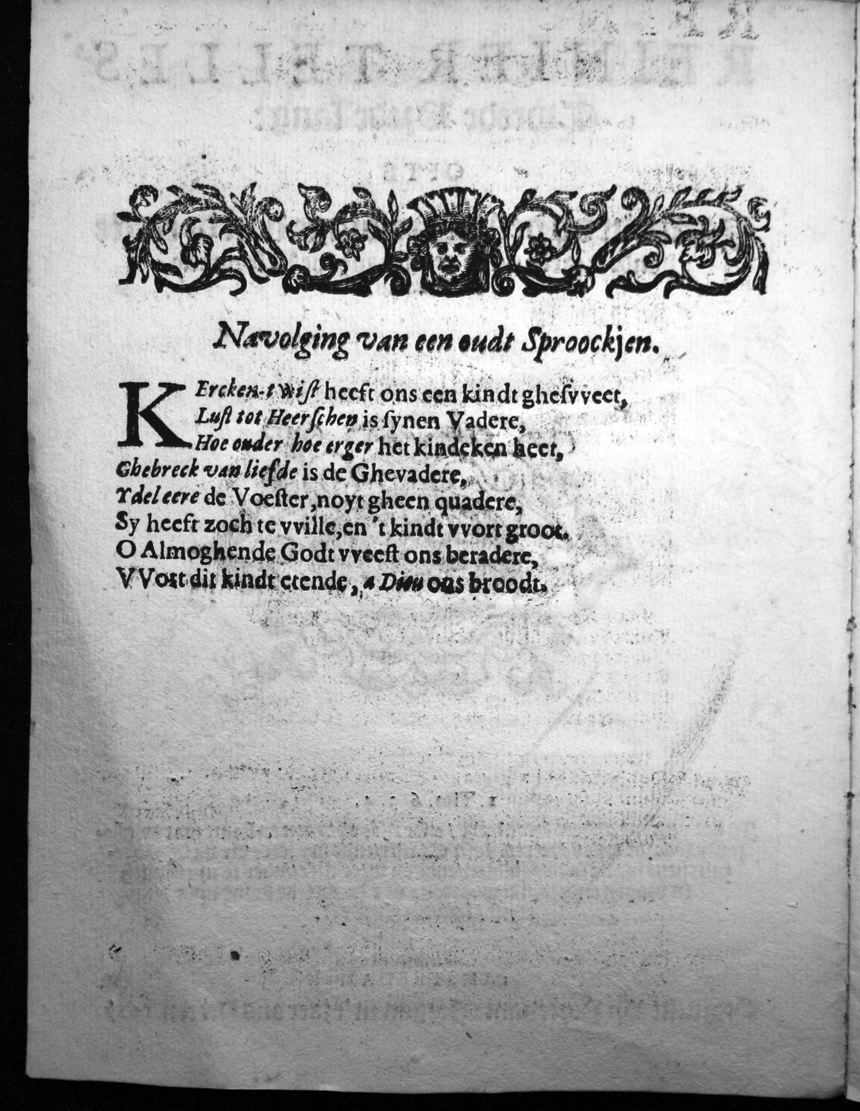 Navolging van een oudt Sproockjen.
KErcken-twist heeft ons een kindt ghesvveet,
Lust tot Heerschen is synen Vadere,
Hoe ouder hoe erger het kindeken heet,
Ghebreck van liefde is de Ghevadere,
Ydel eere de Voester, noyt gheen quadere,
Sy heeft zoch te vville, en 't kindt vvort groot.
O Almoghende Godt vveest ons beradere,
VVort dit kindt etende, a Dieu ons broodt.